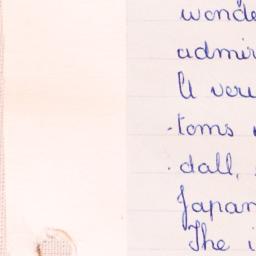 wonde
admir
It very
·toms
·dall,
Japan
The i